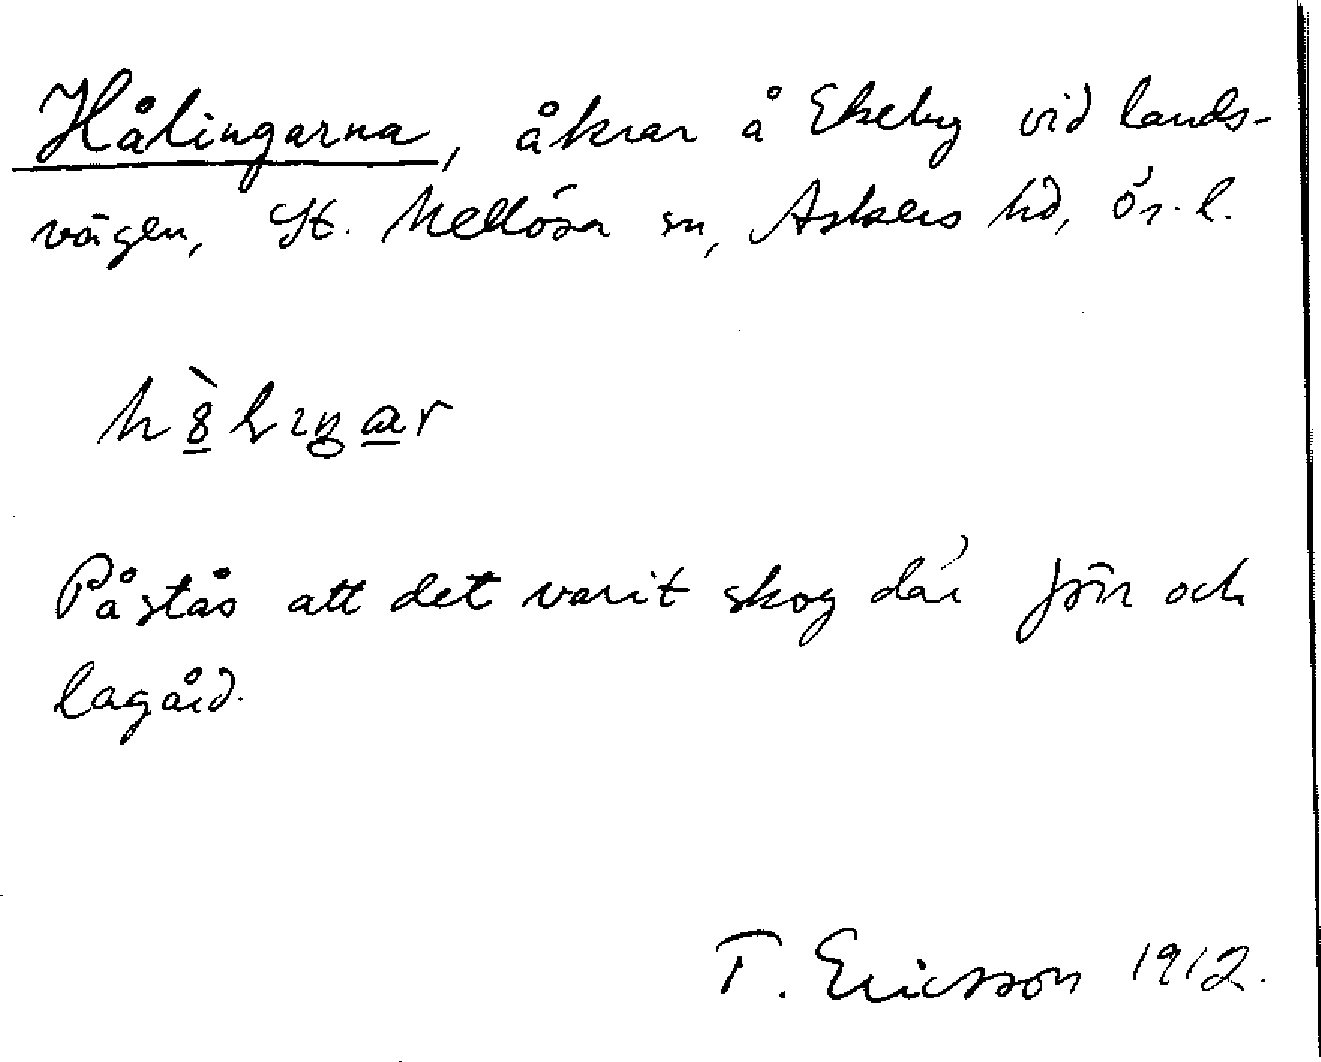 Hålingarna, åkrar å Ekeby vid lands-
vägen, St. Mellösa sn, Askers hd, Ör. l.
Påstås att det varit skog där förr och
lagård.
T. Ericsson 1912.